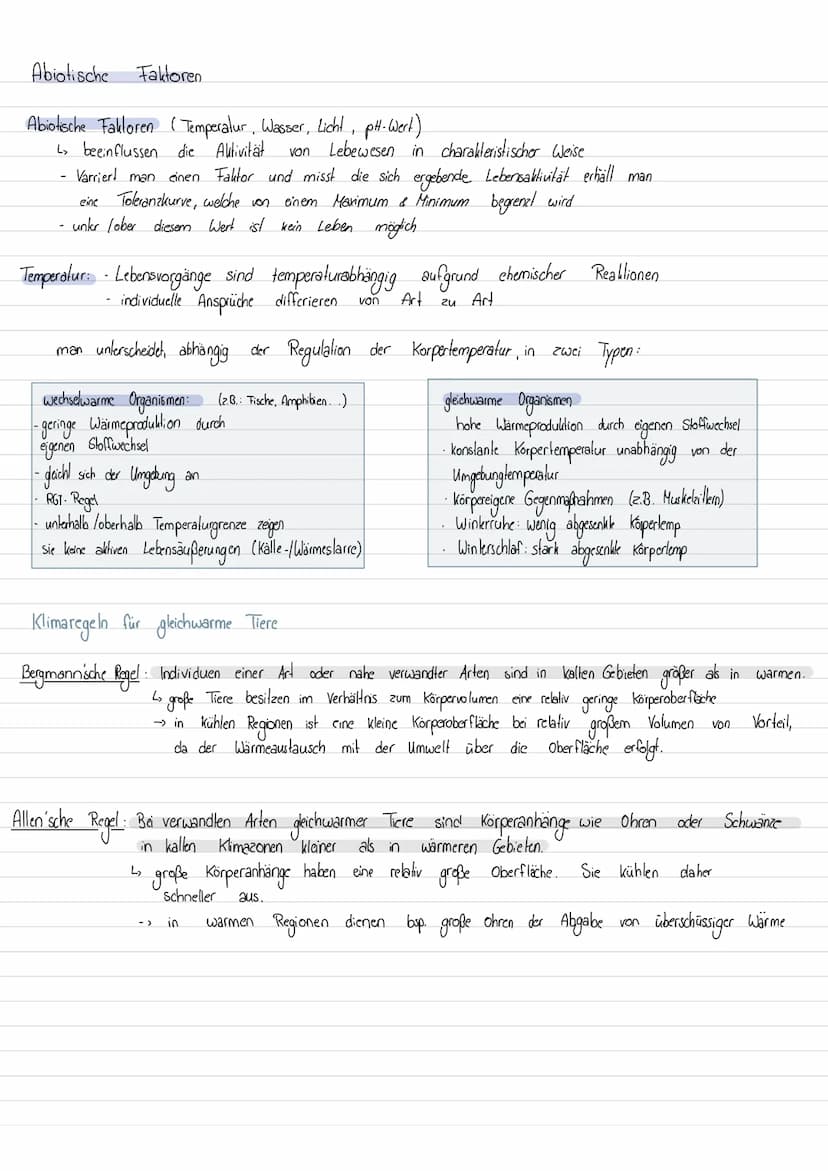 Abiotische Faktoren
Abiotische Faktoren (Temperatur, Wasser, Licht, pH-Wert)
↳ beeinflussen die Aktivität von Lebewesen in charakteristischer Weise
- Varriert man einen Faktor und misst die sich ergebende Lebensaktivität erhält man
eine Toleranzkurve, welche von einem Maximum & Minimum begrenzt wird
- unter/ober diesem Wert ist kein Leben möglich
Temperatur: - Lebensvorgänge sind temperaturabhängig aufgrund chemischer Reaktionen
- individuelle Ansprüche differieren von Art zu Art
man unterscheidet, abhängig der Regulation der Körpertemperatur, in zwei Typen:
wechselwarme Organismen: (z.B.: Fische, Amphibien...)
- geringe Wärmeproduktion durch
eigenen Stoffwechsel
- gleicht sich der Umgebung an
- RGT-Regel
- unterhalb/oberhalb Temperaturgrenze zeigen
sie keine aktiven Lebensäußerungen (Kälte-/Wärmestarre)
gleichwarme Organismen
hohe Wärmeproduktion durch eigenen Stoffwechsel
· konstante Körpertemperatur unabhängig von der
Umgebungtemperatur
· Körpereigene Gegenmaßnahmen (z.B. Muskelzittern)
· Winterruhe: wenig abgesenkte Körpertemp
· Winterschlaf: stark abgesenkte Körpertemp
Klimaregeln für gleichwarme Tiere
Bergmann'sche Regel: Individuen einer Art oder nahe verwandter Arten sind in kalten Gebieten größer als in warmen.
↳ große Tiere besitzen im Verhältnis zum Körpervolumen eine relativ geringe Körperoberfläche
→ in kühlen Regionen ist eine kleine Körperoberfläche bei relativ großem Volumen von Vorteil,
da der Wärmeaustausch mit der Umwelt über die Oberfläche erfolgt.
Allen'sche Regel: Bei verwandten Arten gleichwarmer Tiere sind Körperanhänge wie Ohren oder Schwänze
in kalten Klimazonen kleiner als in wärmeren Gebieten.
↳ große Körperanhänge haben eine relativ große Oberfläche. Sie kühlen daher
schneller aus.
-> in warmen Regionen dienen bsp. große Ohren der Abgabe von überschüssiger Wärme